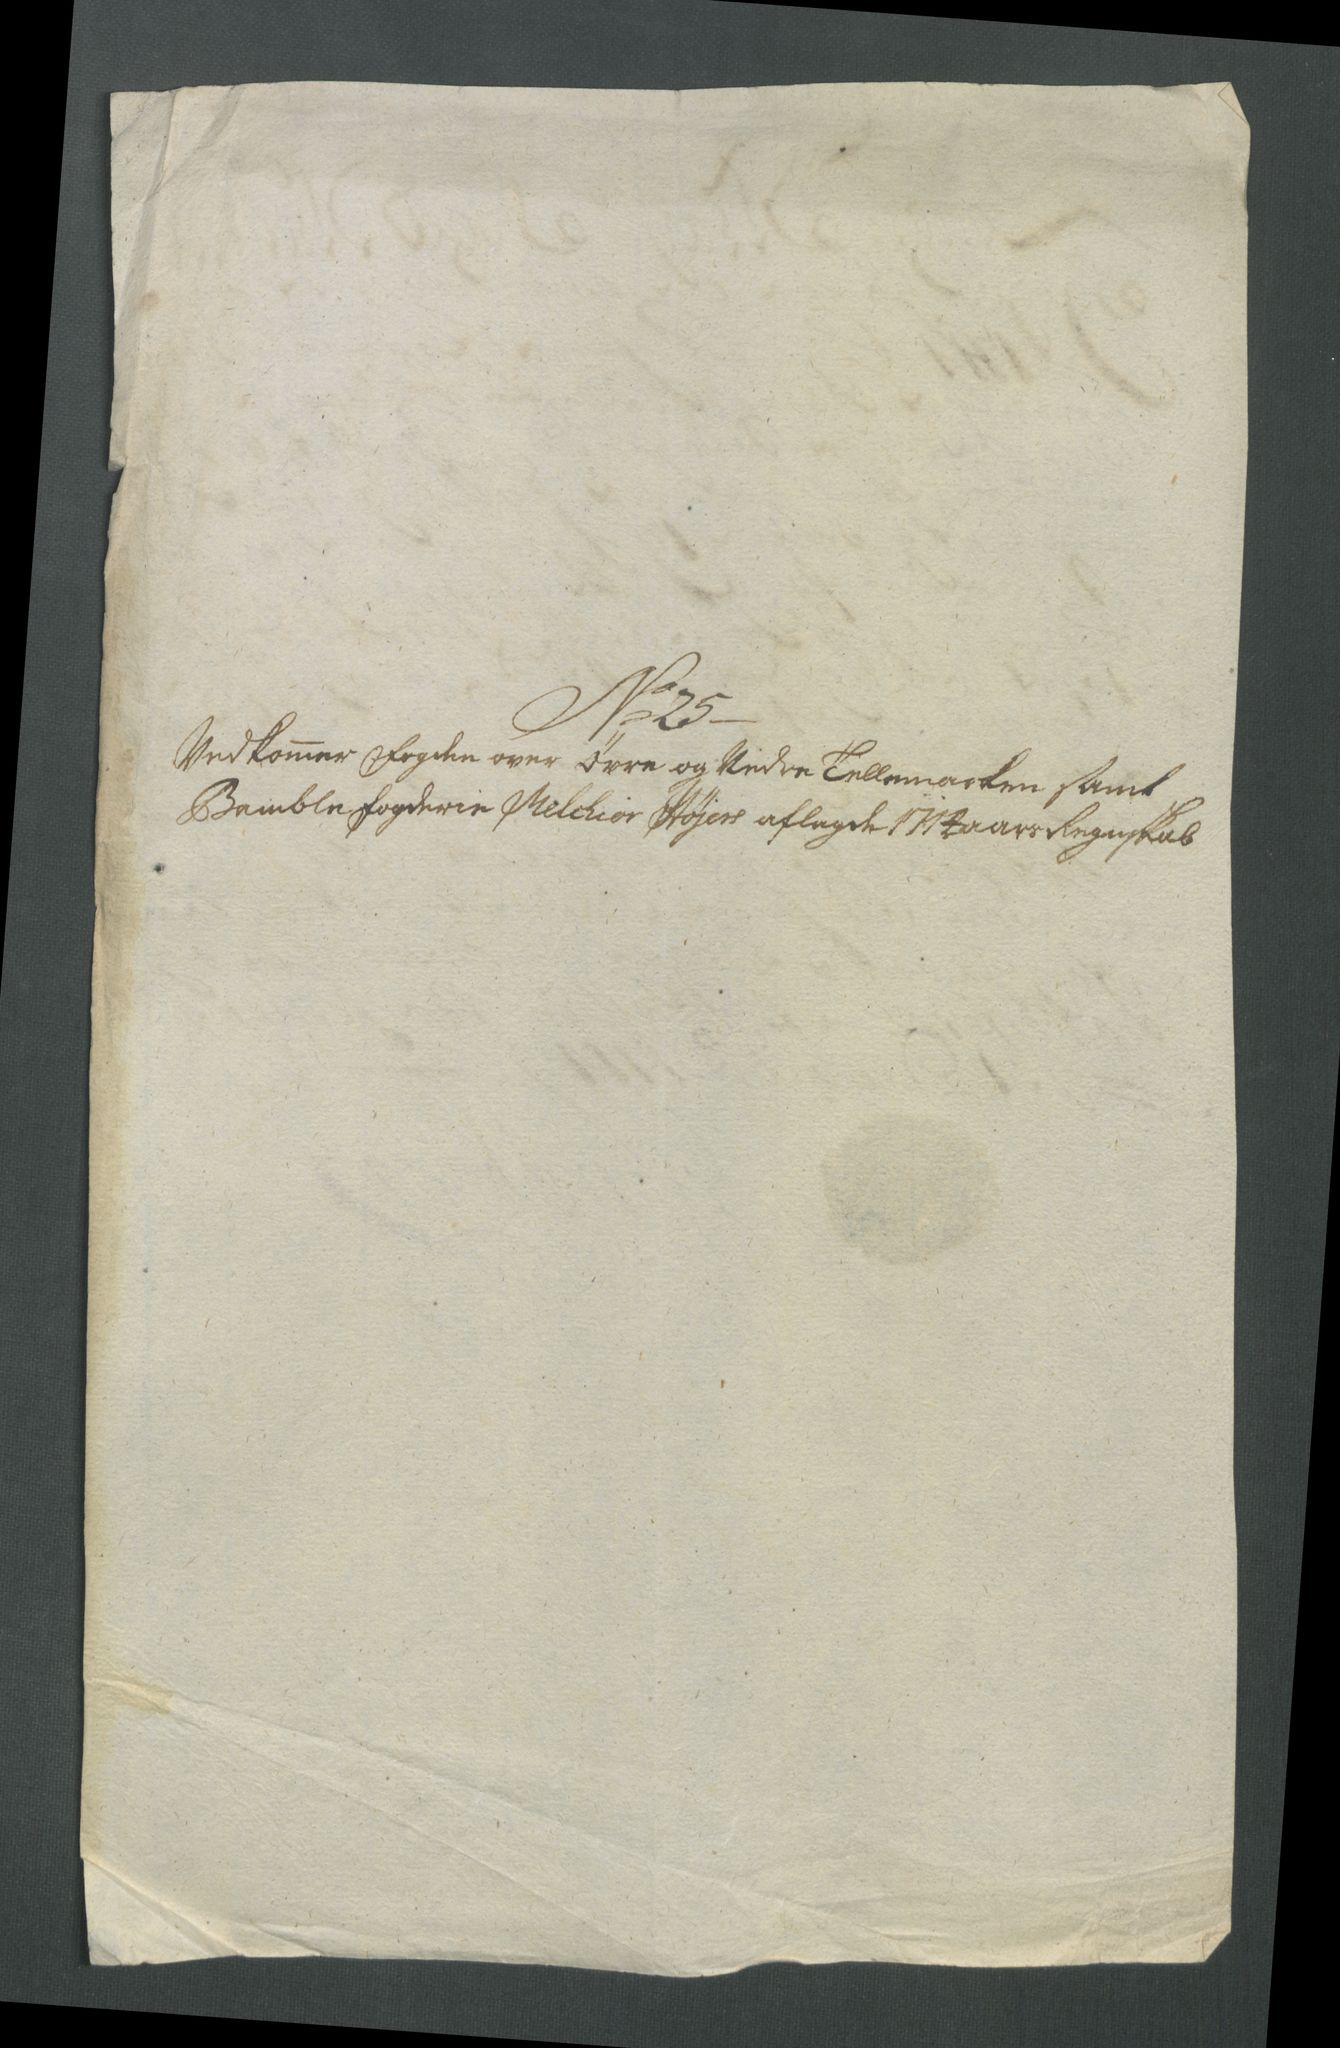 No 25
Vedkom̄er fogden over Övre og Nedre Tellemarken samt
Bamble fogderie Melchior Höjers aflagde 1714 aars Regnskab